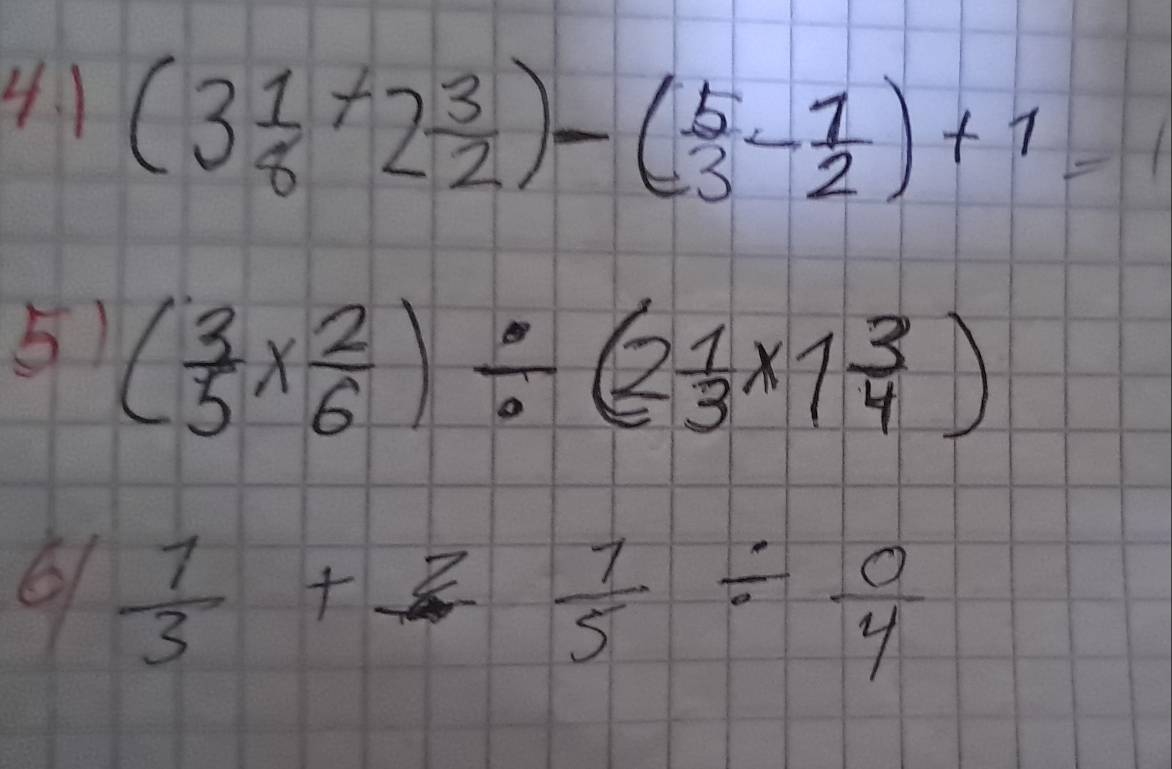 4.) (3 1/8 + 2 3/2) - (5/3 - 1/2) + 1 =
5) (3/5 x 2/6) ÷ (2 1/3 x 1 3/4)
6) 1/3 + 1/5 ÷ 0/4